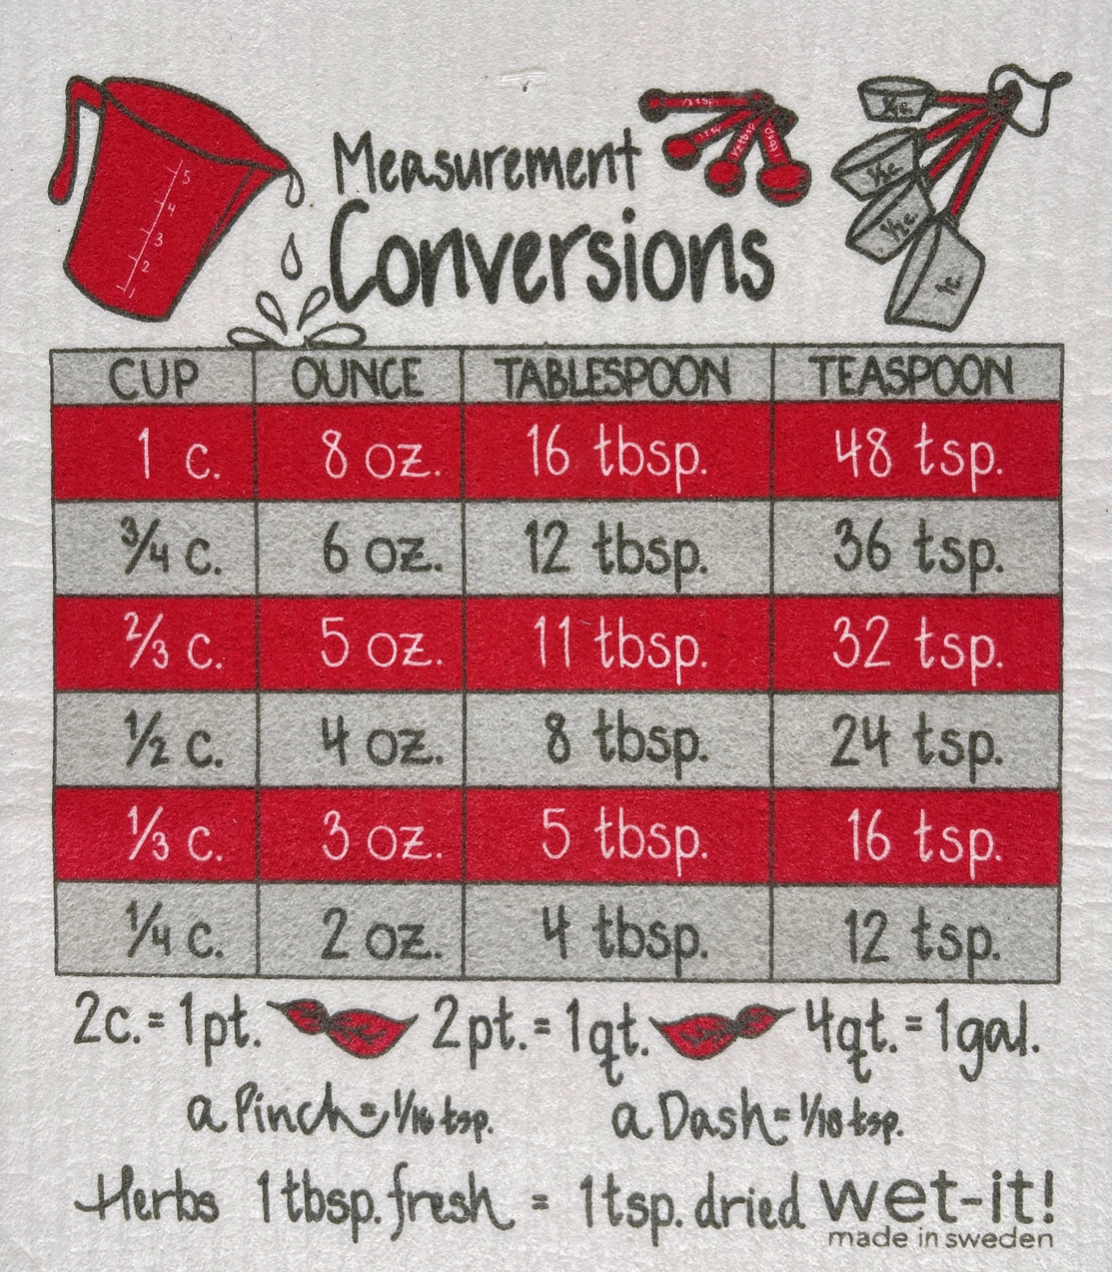 Measurement
Conversions
1 tsp.
1/2 tbsp
1 tbsp
5
4
3
2
1
1/4 c.
1/3 c.
1/2 c.
1c.
CUP OUNCE TABLESPOON TEASPOON
1 c. 8 oz. 16 tbsp. 48 tsp.
3/4 c. 6 oz. 12 tbsp. 36 tsp.
2/3 c. 5 oz. 11 tbsp. 32 tsp.
1/2 c. 4 oz. 8 tbsp. 24 tsp.
1/3 c. 3 oz. 5 tbsp. 16 tsp.
1/4 c. 2 oz. 4 tbsp. 12 tsp.
2c. = 1pt. 2pt. = 1qt. 4qt. = 1gal.
a Pinch = 1/16 tsp. a Dash = 1/18 tsp.
Herbs 1 tbsp. fresh = 1 tsp. dried wet-it!
made in sweden